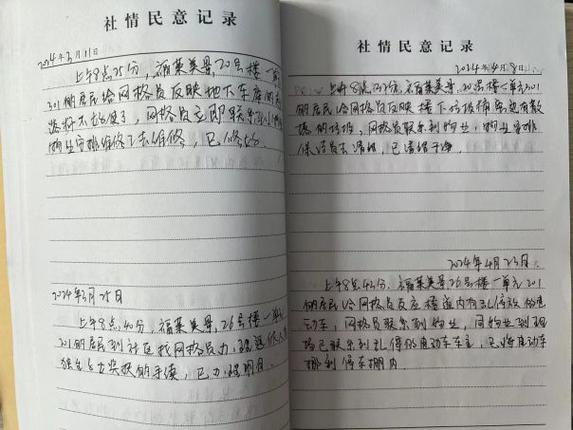 社情民意记录
2024年3月11日
上午8点25分,福莱美景,20号楼一单元
201的居民给网格员反映地下车库的
了,网格员立即联系
物业安排维修工去维修,已修好
2024年3月25日
上午8点40分,福莱美景,26号楼一单元
201的居民到社区找网格员办理
手续,已办理明白。
社情民意记录
2024年4月8日
上午8点32分,福莱美景,20号楼一单元201
的居民给网格员反映楼下垃圾桶旁边有散
落的垃圾,网格员联系到物业,物业安排
保洁员去清理,已清理干净。
2024年4月23日
上午8点43分,福莱美景26号楼一单元201
的居民给网格员反应楼道内有乱停放的电
动车,网格员联系到物业,同物业到现
场已联系到乱停的电动车车主,已将电动车
挪到停车棚内.